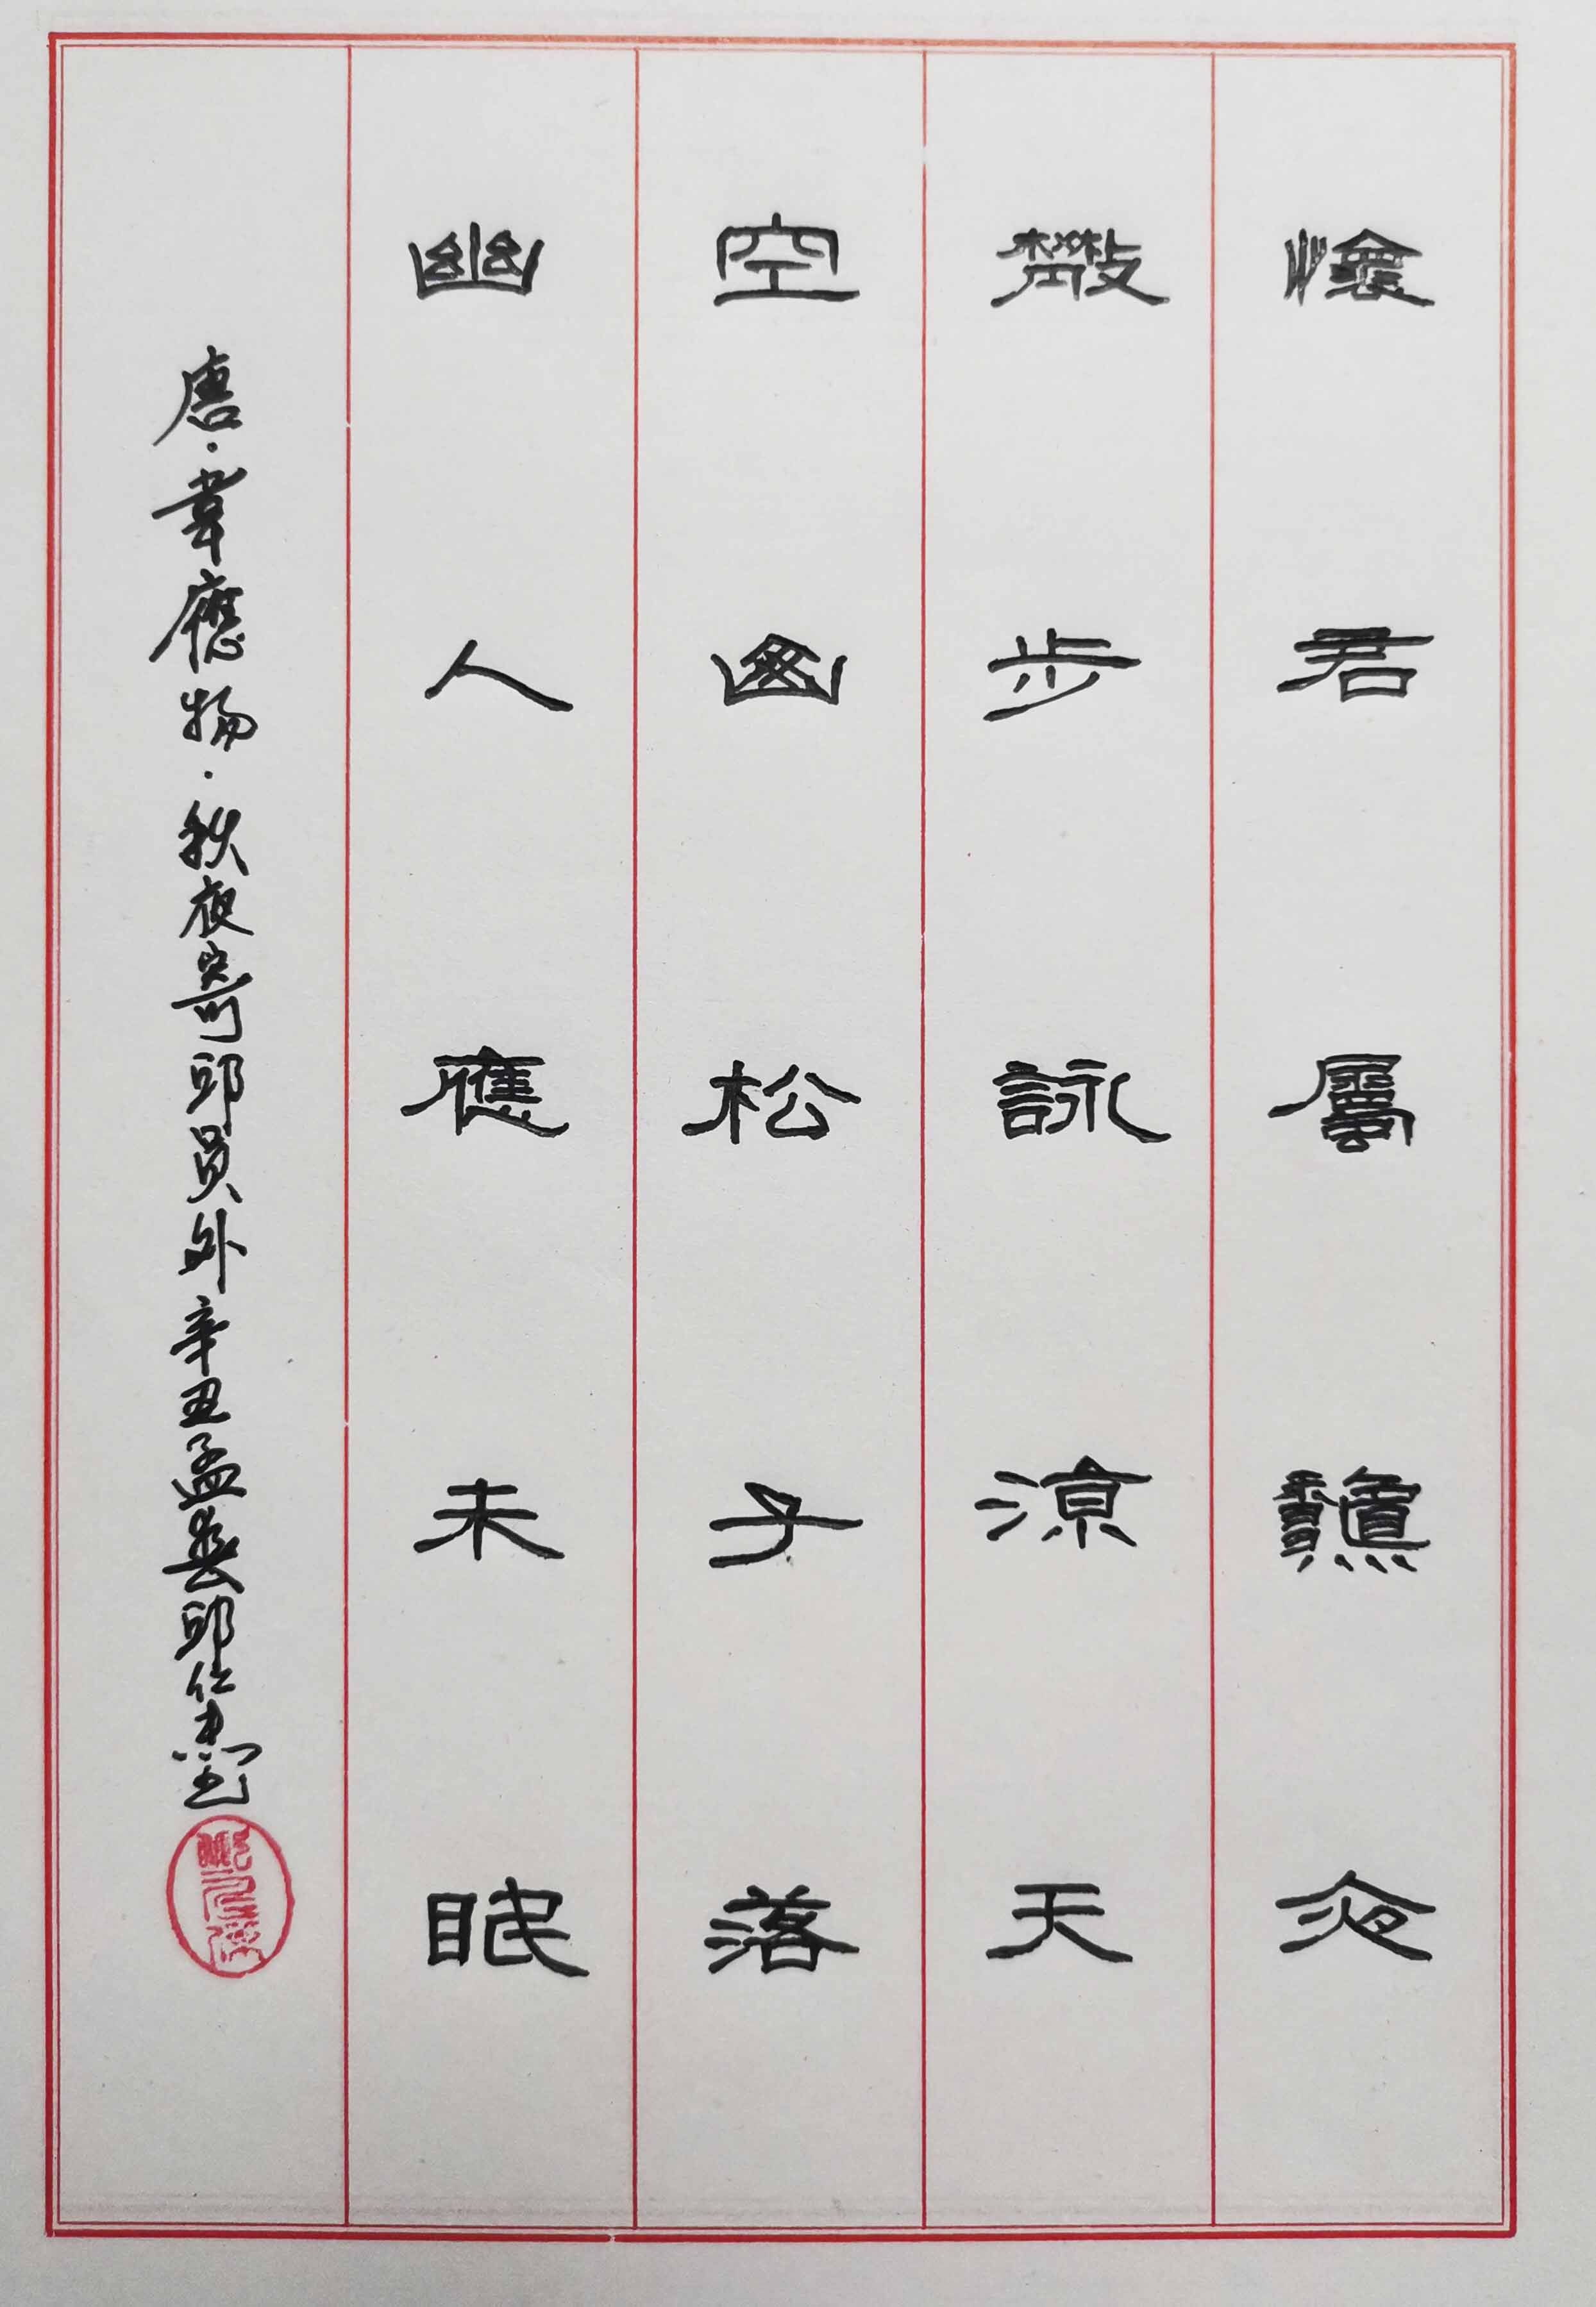 懷君屬龝夜
散步詠涼天
空山松子落
幽人應未眠
唐·韋應物·秋夜寄邱員外 辛丑孟春邱書